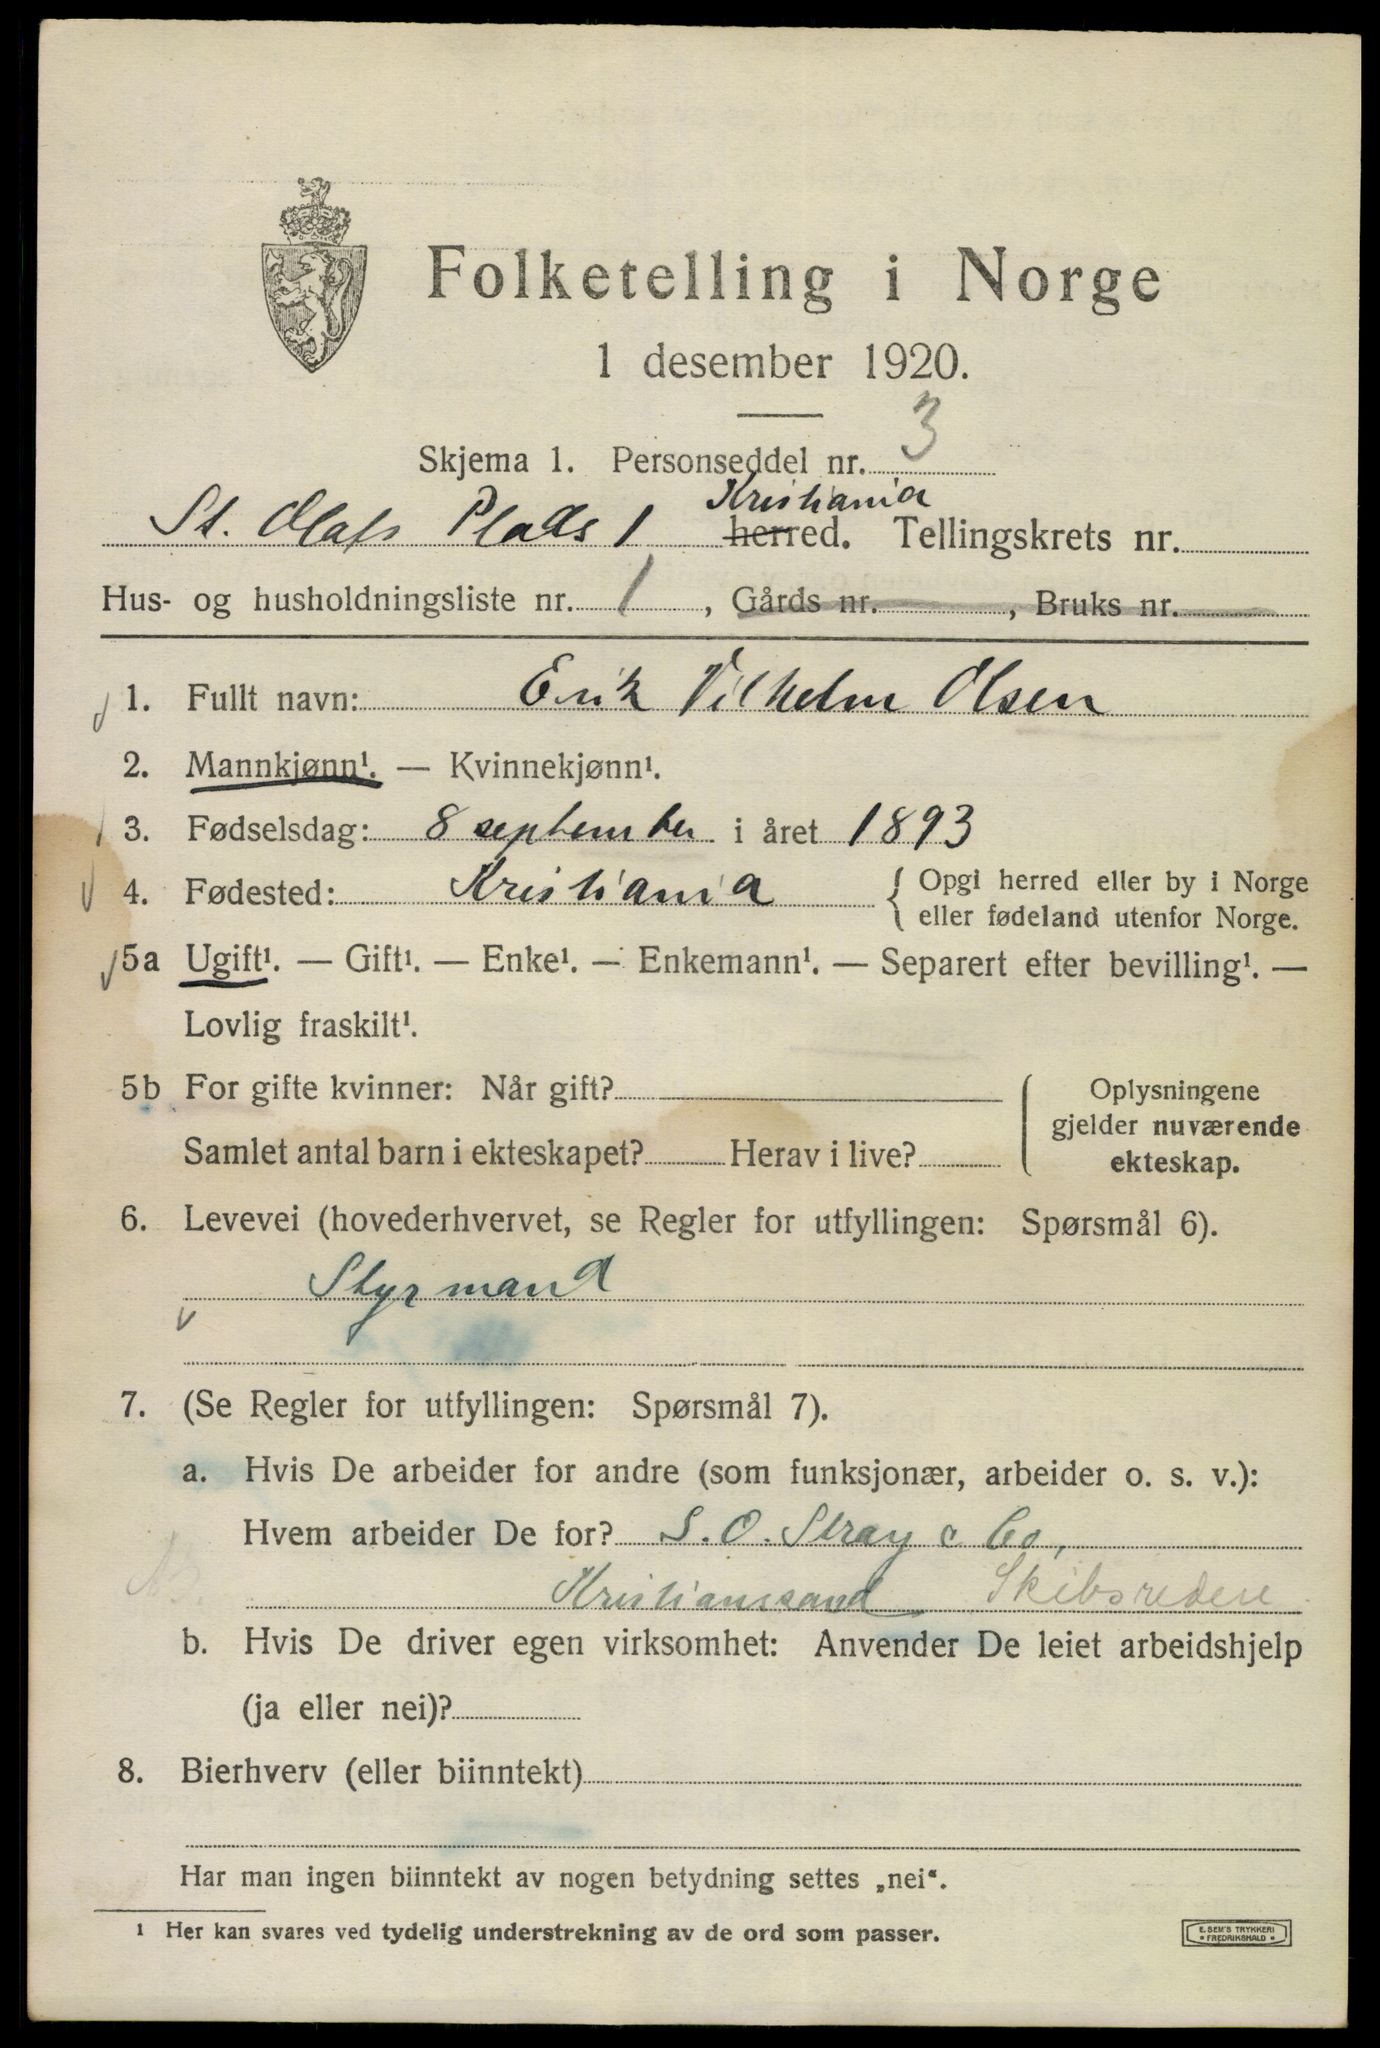 Folketelling i Norge
1 desember 1920.
Skjema 1. Personseddel nr. 3
St. Olafs Plads 1 Kristiania herred. Tellingskrets nr.
Hus- og husholdningsliste nr. 1, Gårds nr. , Bruks nr.
1. Fullt navn: Erik Vilhelm Olsen
2. Mannkjønn¹. — Kvinnekjønn¹.
3. Fødselsdag: 8 september i året 1893
4. Fødested: Kristiania { Opgi herred eller by i Norge
eller fødeland utenfor Norge.
5a Ugift¹. — Gift¹. — Enke¹. — Enkemann¹. — Separert efter bevilling¹. —
Lovlig fraskilt¹.
5b For gifte kvinner: Når gift?
Samlet antal barn i ekteskapet? Herav i live?
Oplysningene
gjelder nuværende
ekteskap.
6. Levevei (hovederhvervet, se Regler for utfyllingen: Spørsmål 6).
Styrmand
7. (Se Regler for utfyllingen: Spørsmål 7).
a. Hvis De arbeider for andre (som funksjonær, arbeider o. s. v.):
Hvem arbeider De for? S. O. Stray & Co,
Kristianssand Skibsredere
b. Hvis De driver egen virksomhet: Anvender De leiet arbeidshjelp
(ja eller nei)?
8. Bierhverv (eller biinntekt)
Har man ingen biinntekt av nogen betydning settes „nei“.
¹ Her kan svares ved tydelig understrekning av de ord som passer.
E. SEM'S TRYKKERI
• FREDRIKSHALD •